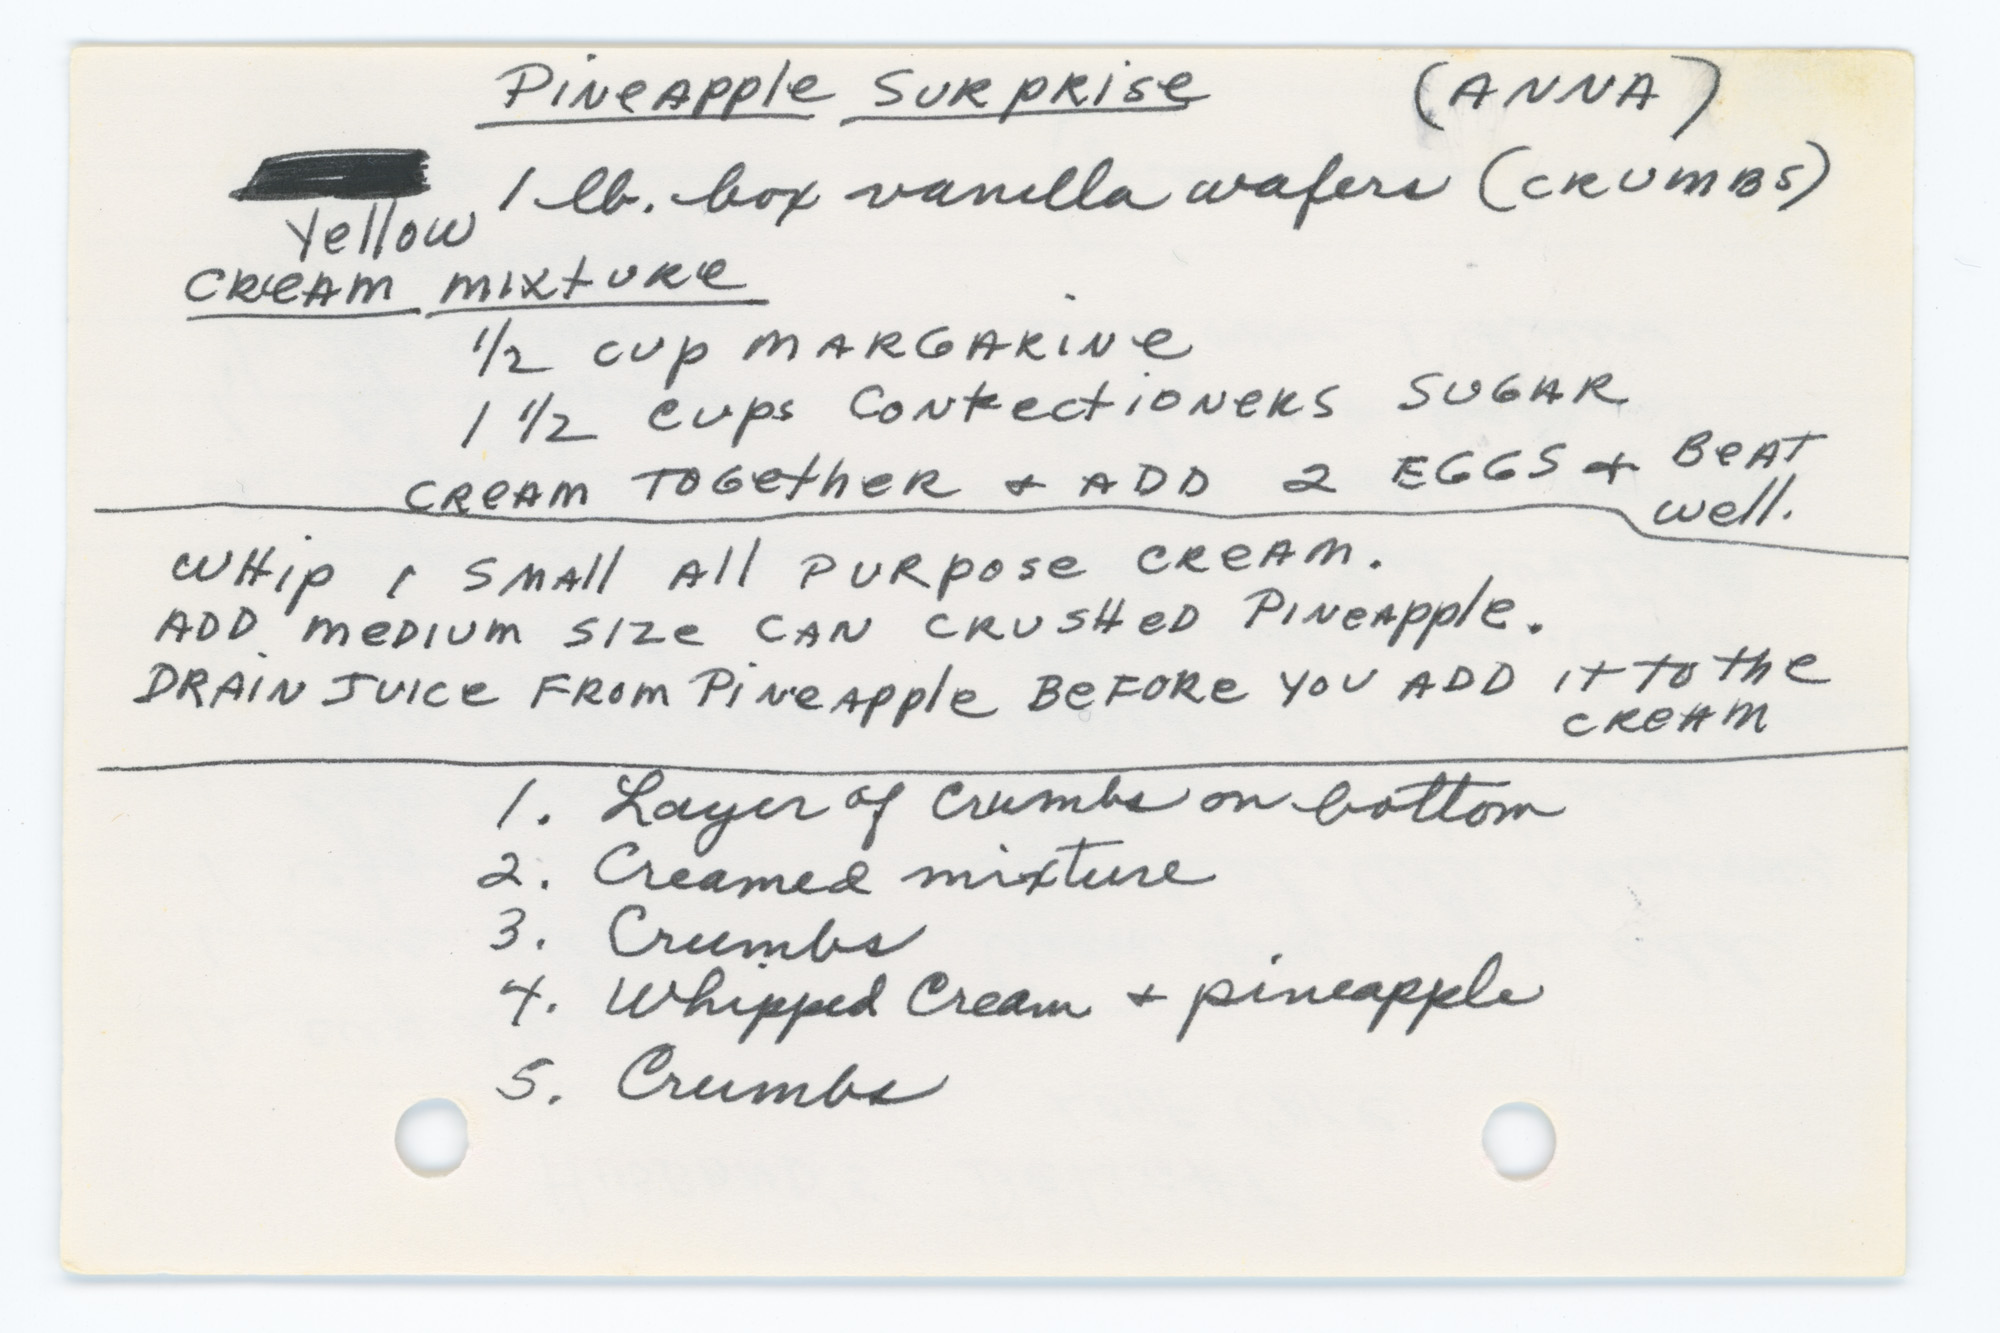 Pineapple Surprise (ANNA)
1 lb. box vanilla wafers (CRUMBS)
Yellow
CREAM MIXTURE
1/2 CUP MARGARINE
1 1/2 CUPS CONFECTIONERS SUGAR
CREAM TOGETHER & ADD 2 EGGS & BEAT
well.
WHIP 1 SMALL ALL PURPOSE CREAM.
ADD MEDIUM SIZE CAN CRUSHED PINEAPPLE.
DRAIN JUICE FROM PINEAPPLE BEFORE YOU ADD IT TO THE
CREAM
1. Layer of crumbs on bottom
2. Creamed mixture
3. Crumbs
4. Whipped Cream & pineapple
5. Crumbs